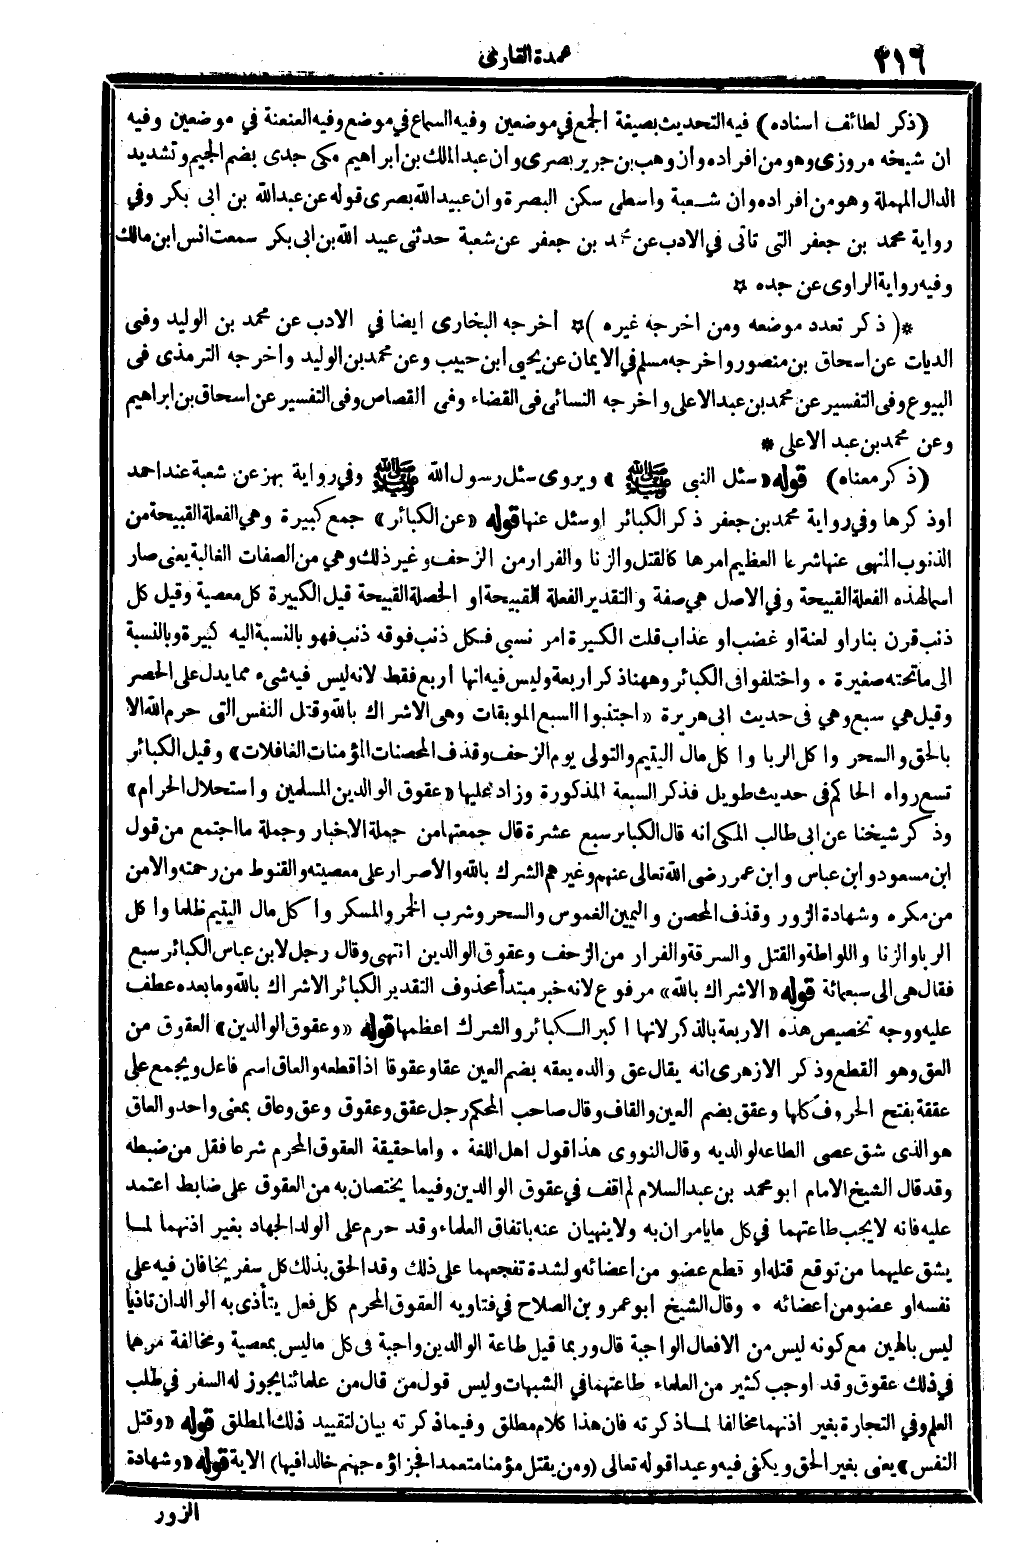 ٢١٦
عمدة القارئ
(ذكر لطائف اسناده) فيه التحديث بصيغة الجمع في موضعين وفيه السماع في موضع وفيه العنعنة في موضعين وفيه
ان شيخه مروزى وهو من افراده وان وهب بن جرير بصرى وان عبد الملك بن ابراهيم مكى جدى بضم الجيم وتشديد
الدال المهملة وهو من افراده وان شعبة واسطى سكن البصرة وان عبيد الله بصرى قوله عن عبد الله بن ابى بكر وفي
رواية محمد بن جعفر التى تاتى في الادب عن محمد بن جعفر عن شعبة حدثنى عبيد الله بن ابى بكر سمعت انس ابن مالك
وفيه رواية الراوى عن جده ☆
*(ذكر تعدد موضعه ومن اخرجه غيره)☆ اخرجه البخارى ايضا في الادب عن محمد بن الوليد وفى
الديات عن اسحاق بن منصور واخرجه مسلم في الايمان عن يحيى ابن حبيب وعن محمد بن الوليد واخرجه الترمذى فى
البيوع وفى التفسير عن محمد بن عبد الاعلى واخرجه النسائى فى القضاء وفى القصاص وفى التفسير عن اسحاق بن ابراهيم
وعن محمد بن عبد الاعلى *
(ذكر معناه) قوله «سئل النبى ﷺ» ويروى سئل رسول الله ﷺ وفي رواية بهز عن شعبة عند احمد
اوذكرها وفي رواية محمد بن جعفر ذكر الكبائر او سئل عنها قوله «عن الكبائر» جمع كبيرة وهي الفعلة القبيحة من
الذنوب المنهى عنها شرعا العظيم امرها كالقتل والزنا والفرار من الزحف وغير ذلك وهي من الصفات الغالبة يعنى صار
اسما لهذه الفعلة القبيحة وفي الاصل هي صفة والتقدير الفعلة القبيحة او الخصلة القبيحة قيل الكبيرة كل معصية وقيل كل
ذنب قرن بنار او لعنة او غضب او عذاب قلت الكبيرة امر نسبي فكل ذنب فوقه ذنب فهو بالنسبة اليه كبيرة وبالنسبة
الى ما تحته صغيرة • واختلفوا فى الكبائر وههنا ذكر اربعة وليس فيه انها اربع فقط لانه ليس فيه شيء مما يدل على الحصر
وقيل هي سبع وهي فى حديث ابى هريرة «اجتنبوا السبع الموبقات وهى الاشراك بالله وقتل النفس التى حرم الله الا
بالحق والسحر واكل الربا واكل مال اليتيم والتولى يوم الزحف وقذف المحصنات المؤمنات الغافلات» وقيل الكبائر
تسع رواه الحاكم فى حديث طويل فذكر السبعة المذكورة وزاد عليها «عقوق الوالدين المسلمين واستحلال الحرام»
وذكر شيخنا عن ابى طالب المكى انه قال الكبائر سبع عشرة قال جمعتها من جملة الاخبار وجملة ما اجتمع من قول
ابن مسعود وابن عباس وابن عمر رضى الله تعالى عنهم وغيرهم الشرك بالله والأصرار على معصيته والقنوط من رحمته والامن
من مكره وشهادة الزور وقذف المحصن واليمين الغموس والسحر وشرب الخمر والمسكر واكل مال اليتيم ظلما واكل
الربا والزنا واللواطة والقتل والسرقة والفرار من الزحف وعقوق الوالدين انتهى وقال رجل لابن عباس الكبائر سبع
فقال هى الى سبعمائة قوله «الاشراك بالله» مرفوع لانه خبر مبتدأ محذوف التقدير الكبائر الاشراك بالله وما بعده عطف
عليه ووجه تخصيص هذه الاربعة بالذكر لانها اكبر الكبائر والشرك اعظمها قوله «وعقوق الوالدين» العقوق من
العق وهو القطع وذكر الازهرى انه يقال عق والده يعقه بضم العين عقا وعقوقا اذا قطعه والعاق اسم فاعل ويجمع على
عققة بفتح الحروف كلها وعقق بضم العين والقاف وقال صاحب المحكم رجل عقق وعقوق وعق وعاق بمعنى واحد والعاق
هو الذى شق عصى الطاعه لوالديه وقال النووى هذا قول اهل اللغة • واما حقيقة العقوق المحرم شرعا فقل من ضبطه
وقد قال الشيخ الامام ابو محمد بن عبد السلام لم اقف في عقوق الوالدين وفيما يختصان به من العقوق على ضابط اعتمد
عليه فانه لا يجب طاعتهما في كل ما يامران به ولا ينهيان عنه باتفاق العلماء وقد حرم على الولد الجهاد بغير اذنهما لما
يشق عليهما من توقع قتله او قطع عضو من اعضائه ولشدة تفجعهما على ذلك وقد الحق بذلك كل سفر يخافان فيه على
نفسه او عضو من اعضائه • وقال الشيخ ابو عمرو بن الصلاح في فتاويه العقوق المحرم كل فعل يتأذى به الوالدان تاذيا
ليس بالهين مع كونه ليس من الافعال الواجبة قال وربما قيل طاعة الوالدين واجبة فى كل ما ليس بمعصية ومخالفة امرهما
في ذلك عقوق وقد اوجب كثير من العلماء طاعتهما في الشبهات وليس قول من قال من علمائنا يجوز له السفر في طلب
العلم وفي التجارة بغير اذنهما مخالفا لما ذكرته فان هذا كلام مطلق وفيما ذكرته بيان لتقييد ذلك المطلق قوله «وقتل
النفس» يعنى بغير الحق ويكفى فيه وعيدا قوله تعالى (ومن يقتل مؤمنا متعمدا فجزاؤه جهنم خالدا فيها) الاية قوله «وشهادة
الزور